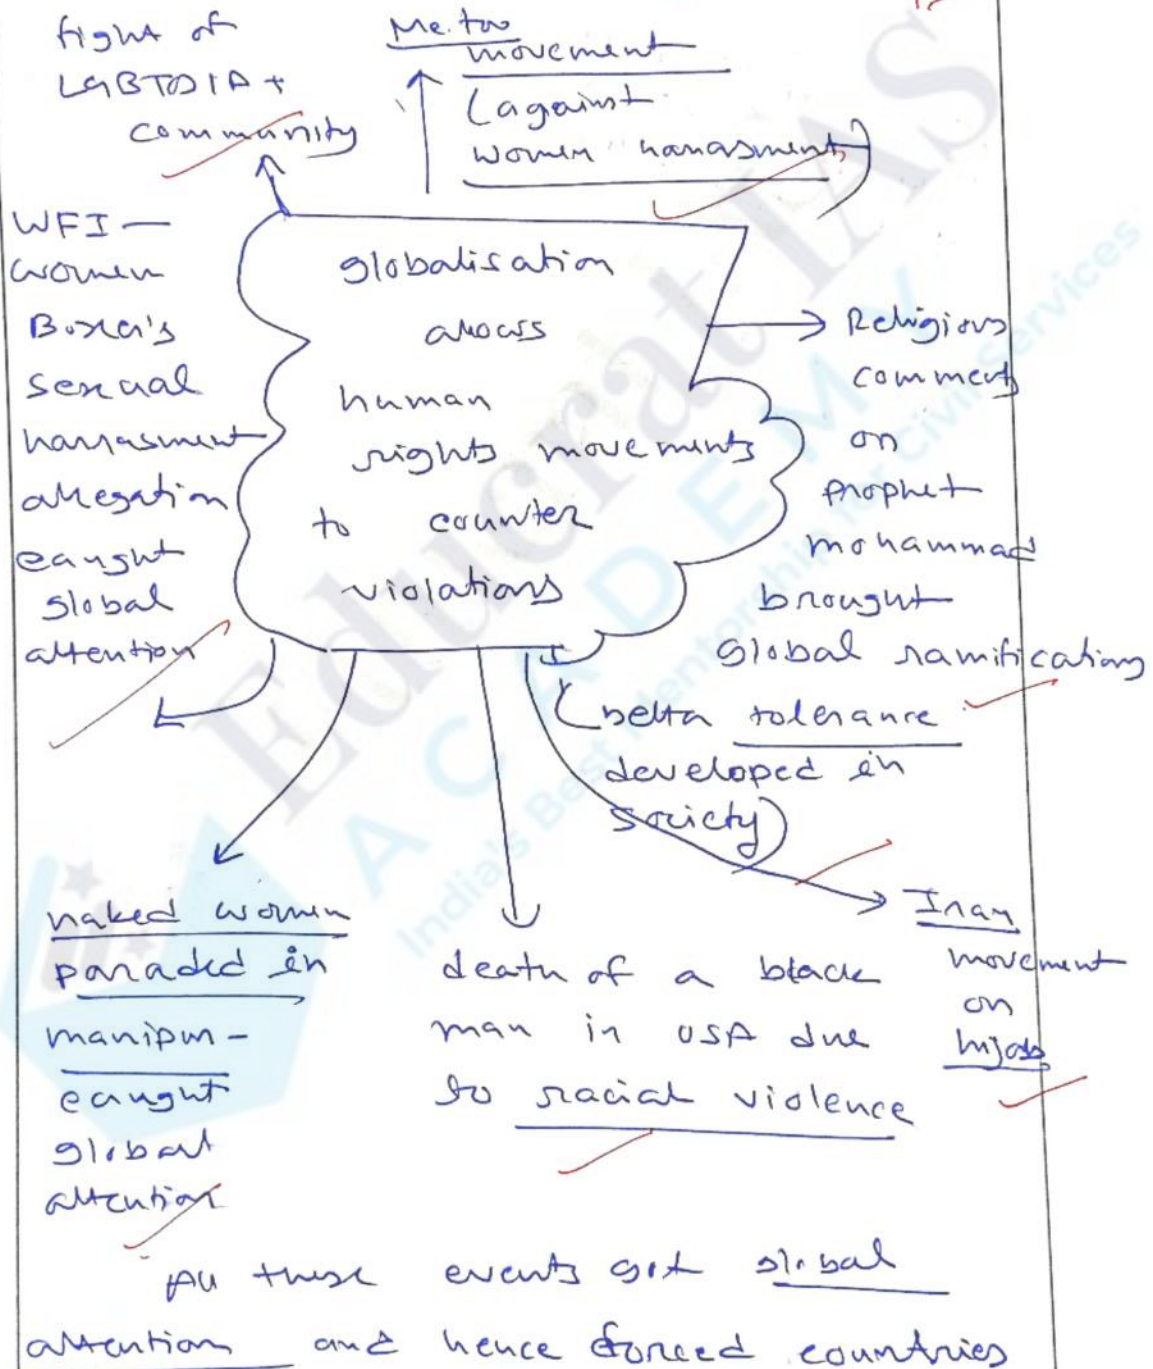 fight of
LGBTQIA+
community
Me. too
movement
(against
women harrasment)
WFI —
women
Boxer's
sexual
harrasment
allegation
caught
global
attention
globalisation
allows
human
rights movements
to counter
violations
Religious
comment
on
Prophet
mohammad
brought
global ramifications
(belta tolerance
developed in
society)
naked women
paraded in
manipur -
caught
global
attention
death of a black
man in USA due
to racial violence
Iran
movement
on
hijab
All these events got global
attention and hence forced countries
Educrat IAS
ACADEMY
India's Best Mentorship for Civil Services